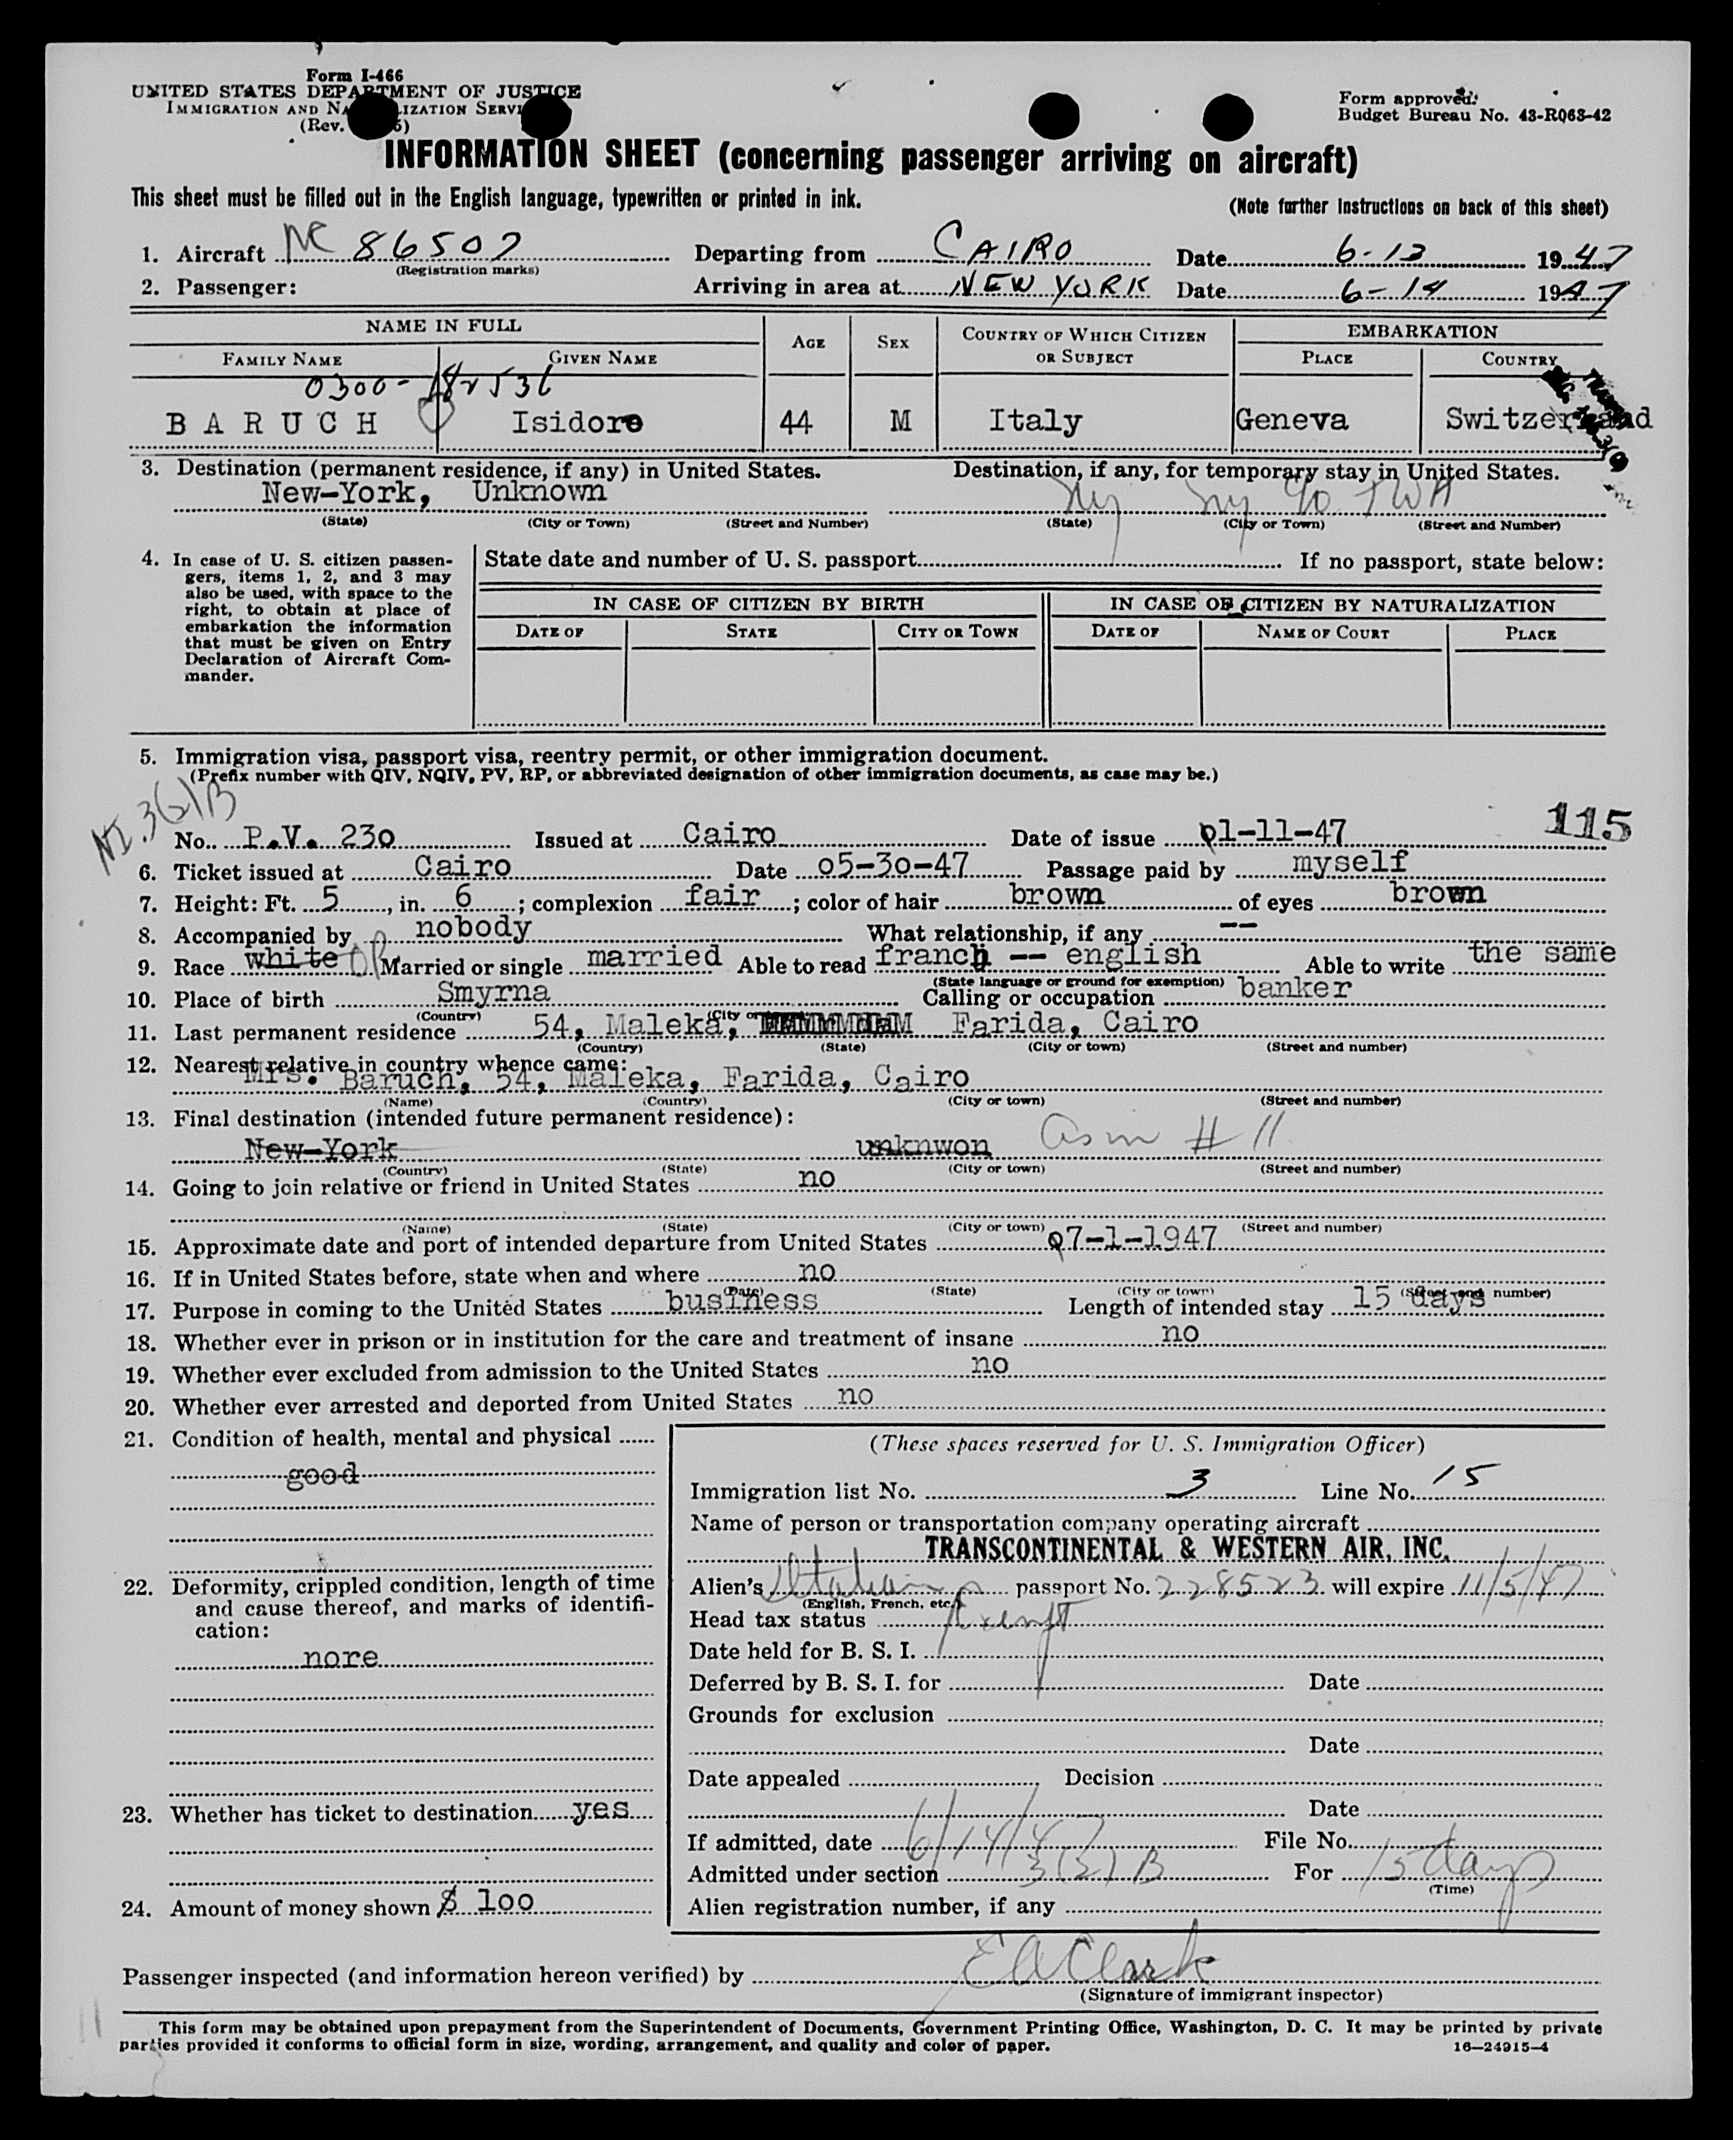 Form I-466
UNITED STATES DEPARTMENT OF JUSTICE
IMMIGRATION AND NATURALIZATION SERVICE
(Rev.
Form approved.
Budget Bureau No. 43-R063-42
INFORMATION SHEET (concerning passenger arriving on aircraft)
This sheet must be filled out in the English language, typewritten or printed in ink.
(Note further instructions on back of this sheet)
1. Aircraft NC 86507 Departing from CAIRO Date 6-13 1947
(Registration marks)
2. Passenger: Arriving in area at NEW YORK Date 6-14 1947
NAME IN FULL AGE SEX COUNTRY OF WHICH CITIZEN OR SUBJECT EMBARKATION
FAMILY NAME GIVEN NAME PLACE COUNTRY
0300-
BARUCH Isidore 44 M Italy Geneva Switzerland
3. Destination (permanent residence, if any) in United States. Destination, if any, for temporary stay in United States.
New-York, Unknown NY NY c/o TWA
(State) (City or Town) (Street and Number) (State) (City or Town) (Street and Number)
4. In case of U. S. citizen passen-
gers, items 1, 2, and 3 may
also be used, with space to the
right, to obtain at place of
embarkation the information
that must be given on Entry
Declaration of Aircraft Com-
mander.
State date and number of U. S. passport If no passport, state below:
IN CASE OF CITIZEN BY BIRTH IN CASE OF CITIZEN BY NATURALIZATION
DATE OF STATE CITY OR TOWN DATE OF NAME OF COURT PLACE
5. Immigration visa, passport visa, reentry permit, or other immigration document.
(Prefix number with QIV, NQIV, PV, RP, or abbreviated designation of other immigration documents, as case may be.)
115
No. P.V. 230 Issued at Cairo Date of issue 01-11-47
6. Ticket issued at Cairo Date 05-30-47 Passage paid by myself
7. Height: Ft. 5, in. 6; complexion fair; color of hair brown of eyes brown
8. Accompanied by nobody What relationship, if any --
9. Race white Married or single married Able to read franch -- english Able to write the same
(State language or ground for exemption)
10. Place of birth Smyrna Calling or occupation banker
(Country) (City or
11. Last permanent residence 54, Maleka, Farida, Cairo
(Country) (State) (City or town) (Street and number)
12. Nearest relative in country whence came:
Mrs. Baruch, 54, Maleka, Farida, Cairo
(Name) (Country) (City or town) (Street and number)
13. Final destination (intended future permanent residence):
New-York unknwon as in # 11
(Country) (State) (City or town) (Street and number)
14. Going to join relative or friend in United States no
(Name) (State) (City or town) (Street and number)
15. Approximate date and port of intended departure from United States 07-1-1947
16. If in United States before, state when and where no
(Date) (State) (City or town) (Street and number)
17. Purpose in coming to the United States business Length of intended stay 15 days
18. Whether ever in prison or in institution for the care and treatment of insane no
19. Whether ever excluded from admission to the United States no
20. Whether ever arrested and deported from United States no
21. Condition of health, mental and physical
good
22. Deformity, crippled condition, length of time
and cause thereof, and marks of identifi-
cation:
nore
23. Whether has ticket to destination yes
24. Amount of money shown $ 100
(These spaces reserved for U. S. Immigration Officer)
Immigration list No. 3 Line No. 15
Name of person or transportation company operating aircraft
TRANSCONTINENTAL & WESTERN AIR, INC.
Alien's Italian passport No. 228523 will expire 11/5/47
(English, French, etc.)
Head tax status Exempt
Date held for B. S. I.
Deferred by B. S. I. for Date
Grounds for exclusion
Date
Date appealed Decision
Date
If admitted, date 6/14/47 File No.
Admitted under section 3(2)B For 15 days
(Time)
Alien registration number, if any
Passenger inspected (and information hereon verified) by E A Clark
(Signature of immigrant inspector)
This form may be obtained upon prepayment from the Superintendent of Documents, Government Printing Office, Washington, D. C. It may be printed by private
parties provided it conforms to official form in size, wording, arrangement, and quality and color of paper.
16-24915-4